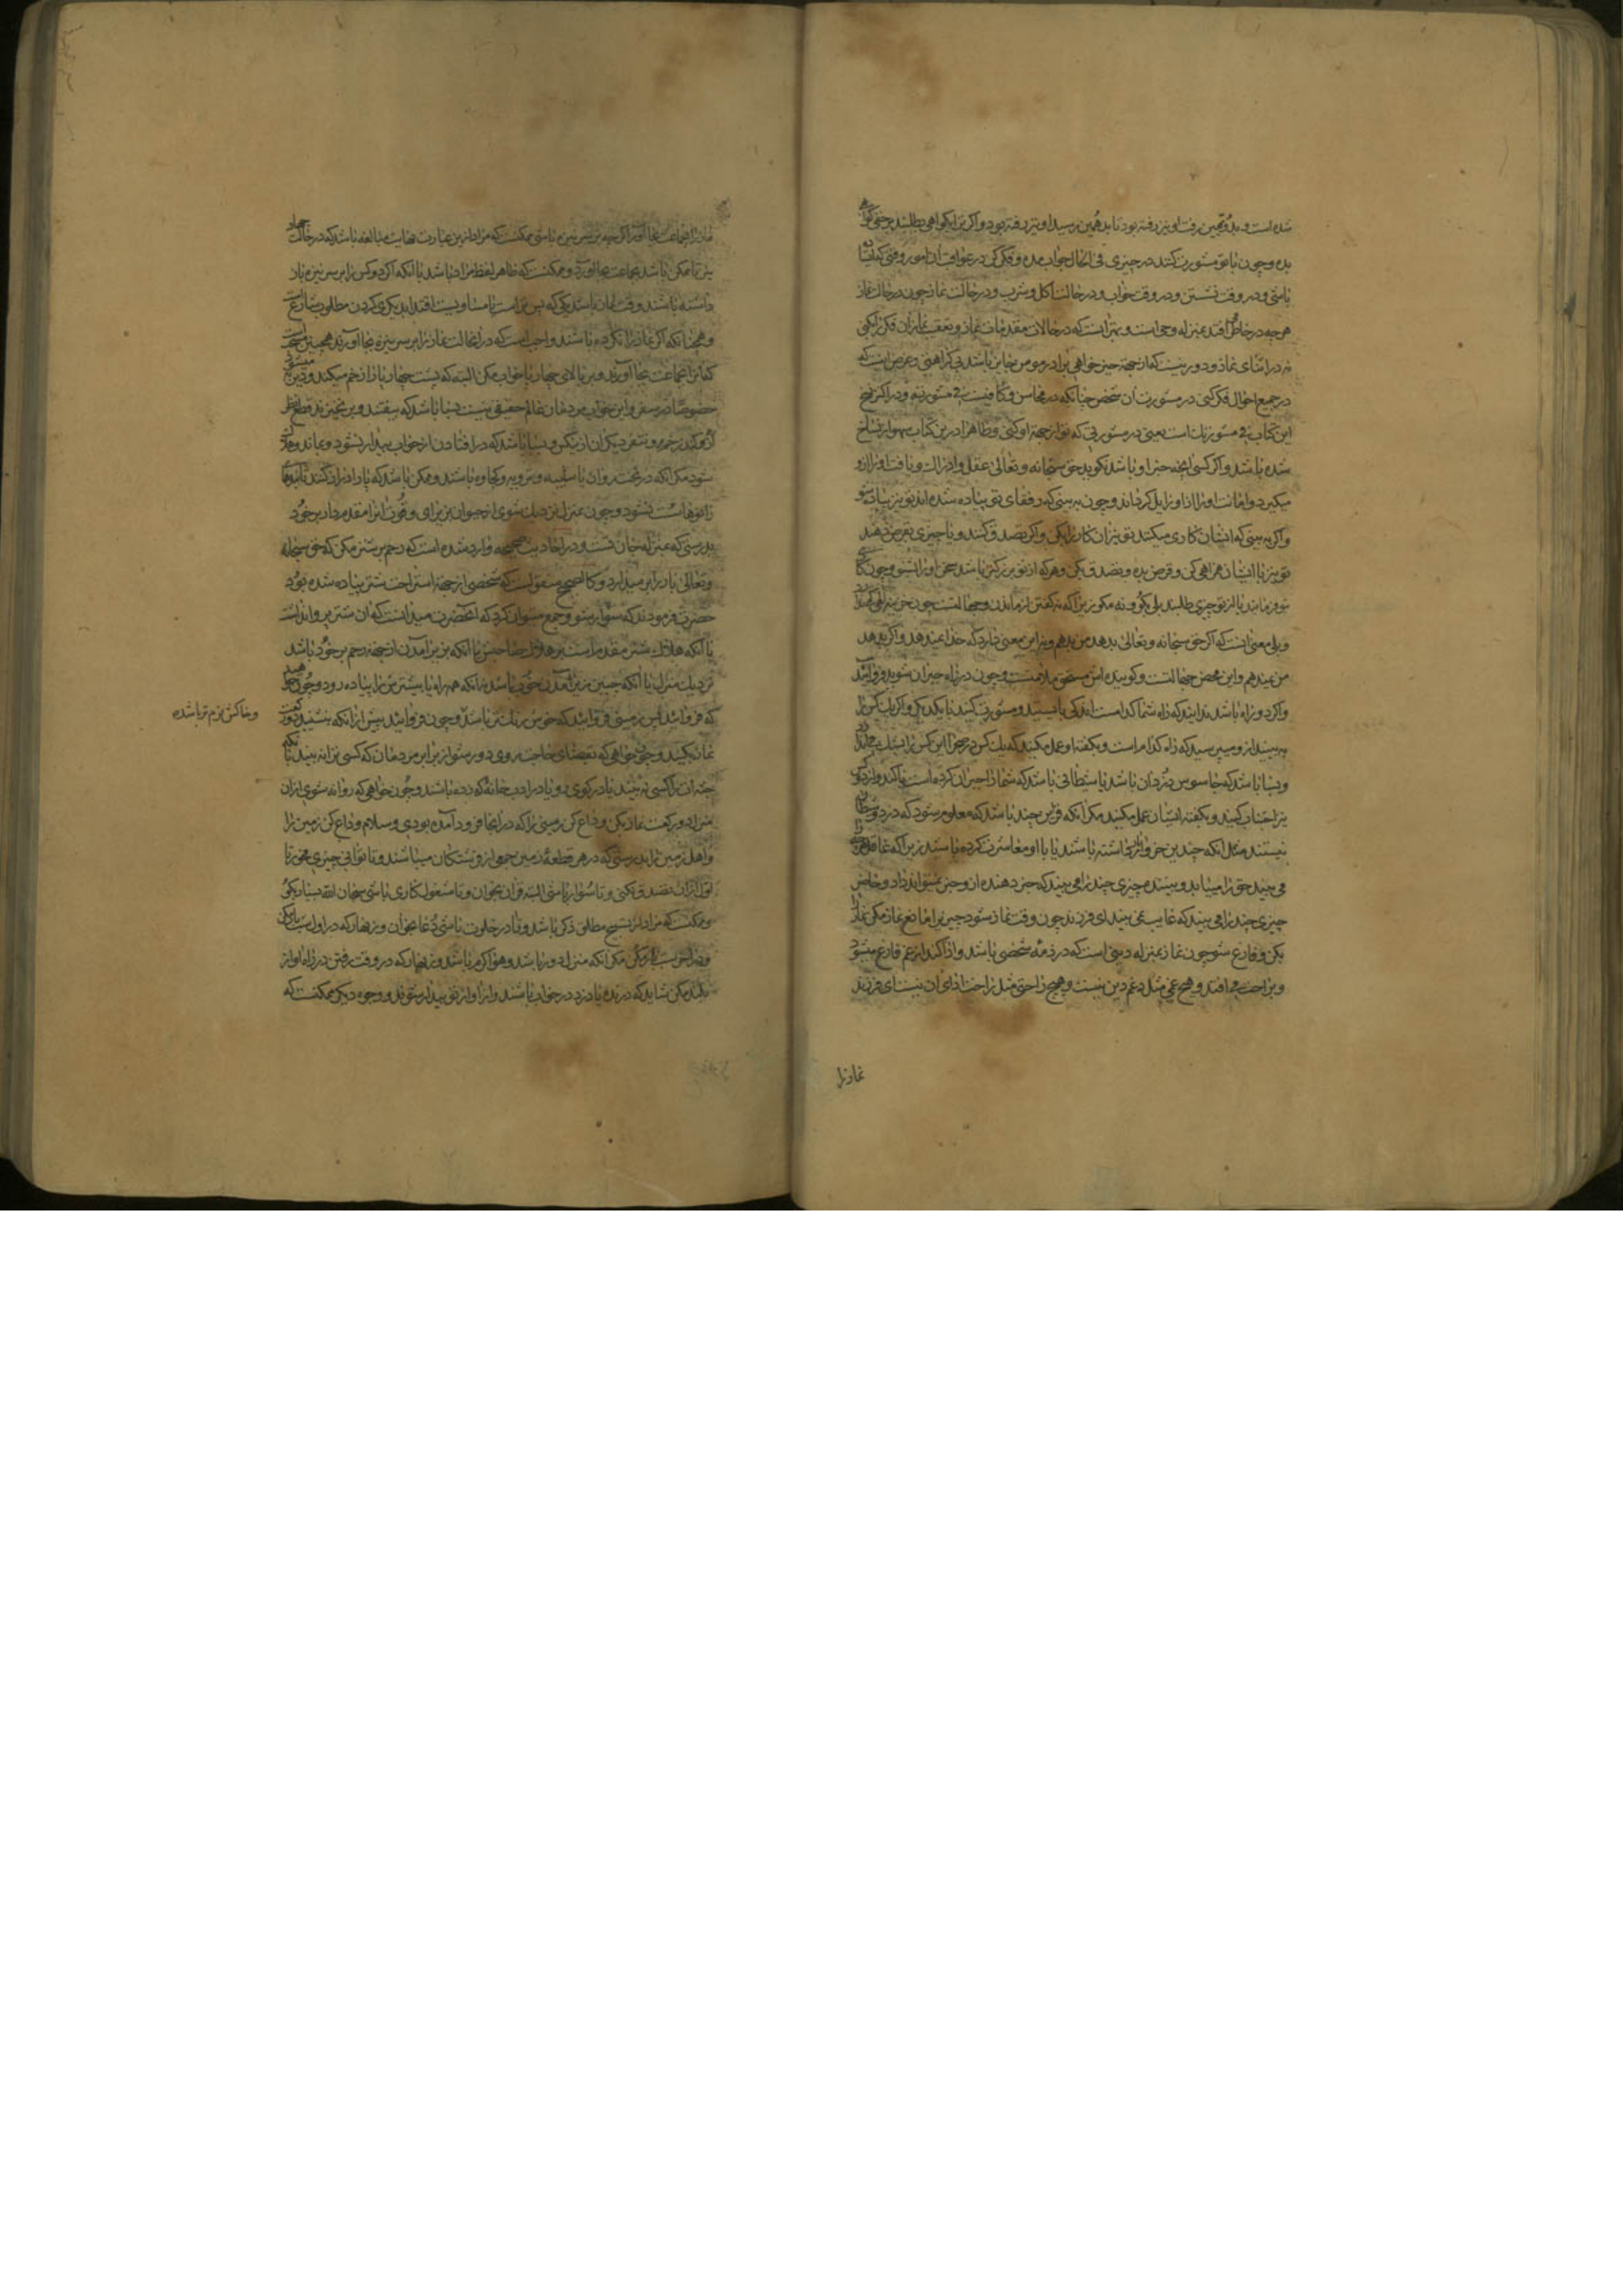 شده است و بدو همچنین رفت او نیز رفته بود تا بدهمین رسید او نیز رفته بود و اگر ترا بگواهی طلبند بر حقی گواهی
بده و چون با تو مشورت کنند در چیزی فی الحال جواب مده و فکر کن در عواقب آن امور وقتی که ایستاده
باشی و در وقت نشستن و در وقت خواب و در حالت اکل و شرب و در حالت نماز چون در حالت نماز
هر چه در خاطر افتد بمنزله وحی است و بهتر آنست که در حالات مقدمات نماز و تعقیب نماز آن فکر را بکنی
نه در اثنای نماز و دور نیست که از جهة خیر خواهی برادر مومن جایز باشد بی کراهتی و غرض اینست که
در جمیع احوال فکر کنی در مشورت آن شخص چنانکه در محاسن و کافیست فی مشورته و در اکثر نسخ
این کتاب فی مشورتک است یعنی در مشورتی که تو از جهة او کنی و ظاهرا درین کتاب سهو از نساخ
شده باشد و اگر کسی آنچه خیر او باشد نگوید حق سبحانه و تعالی عقل و ادراک و یافت او را ازو
میگیرد و امانت او را از او زایل گرداند و چون به بینی که رفقای تو پیاده شده اند تو نیز پیاده شو
و اگر به بینی که ایشان کاری میکنند تو نیز آن کار را بکن و اگر تصدق کنند و یا چیزی بقرض دهند
تو نیز با ایشان همراهی کن و قرض بده و تصدق بکن و هر که از تو بزرگتر باشد سخن او را بشنو و چون کاری
بتو فرمایند یا از تو چیزی طلبند بلی بگو و نه مگو زیرا که نه گفتن از ماندن و خجالتست
و بلی معنی آنست که اگر حق سبحانه و تعالی بدهد من بدهم و نه این معنی دارد که خدا نمیدهد و اگر بدهد
من نمیدهم و این محض خجالتست و گوینده اش مستحق ملامتست و چون در راه حیران شوید فرود آئید
و اگر دو راه باشد ندانید که راه شما کدامست اندکی بایستید و مشورت کنید با یکدیگر و اگر یک کس را
به بینید ازو مپرسید که راه کدام است و بگفته او عمل مکنید که یک کس در صحرا این کس را بشک می اندازد
و بسا باشد که جاسوس دزدان باشد یا شیطانی باشد که شما را حیران کرده است تا کند و از دو کس
نیز اجتناب کنید و بگفته ایشان عمل مکنید مگر آنکه قراین چند باشد که معلوم شود که دزد و شیطان
نیستند مثل آنکه چندین خروار بار داشته باشند یا با او معاشرت کرده باشند زیرا که عاقل چیزی را
می بیند حق را مییابد و بیننده چیزی چند را می بیند که خبر دهنده از و خبر نمیتواند داد و حاضر
چیزی چند را می بیند که غایب نمی بیند ای فرزند چون وقت نماز شود چیزی را مانع نماز مکن نماز را
بکن و فارغ شو چون نماز بمنزله دینی است که در ذمه شخصی باشد و ادا کند از غم فارغ میشود
و براحت می افتد و هیچ غمی مثل غم دین نیست و هیچ راحتی مثل راحت ادای آن نیست ای فرزند
نماز را
نماز را بجماعت بجا آور اگر چه بر سر نیزه باشی ممکنست که مراد ازین عبارت نهایت مبالغه باشد که در حالت جهاد
نیز تا ممکن باشد بجماعت بجا آورد و ممکنست که ظاهر لفظ مراد باشد یا آنکه اگر دو کس را بر سر نیزه باز
داشته باشند و وقت نماز باشد یکی که پس تر است بامساویست اقتدا بدیگری کردن مطلوب شارع است
و همچنانکه اگر نماز را نکرده باشند واجب است که در آن حالت نماز را بر سر نیزه بجا آورند همچنین مستحب است
که آنرا بجماعت بجا آورند و بر بالای چهارپا خواب مکن البته که پشت چهارپا را زخم میکند و دین مسئول
خصوصا در سفر و این خواب مردمان عالم حقیقی نیست و بسا باشد که بیفتند و برنخیزند قطع نظر
شود مگر آنکه در تخت روان یا سلیسه و سرویه و کجاوه باشند و ممکن باشد که پا را دراز کنند تا بندها
زانوها سست نشود و چون بمنزل نزدیک شوی از حیوان بزیر آی و قوت آنرا مقدم دار بر خود
بدرستی که بمنزله جان تست و در احادیث صحیحه وارد شده است که رحم بر شتر مکن که حق سبحانه
و تعالی بار را بر میدارد و کالصحیح منقولست که شخصی از جهة استراحت شتر پیاده شده بود
حضرت فرمودند که سوار شو و جمع میتوان کرد که آنحضرت میدانست که آن شتر پروا نداشت
یا آنکه هلاک شتر مقدم است بر هلاک صاحبش یا آنکه بزیر آمدن از جهة رحم بر خود باشد
نزدیک منزل یا آنکه چنین بزیر آمدن خوب باشد نه آنکه همه راه یا بیشترش را پیاده رود و چون خواهید
که فرود آئید پس بزمینی فرود آئید که خوش رنگ تر باشد و خاکش نرم تر باشد و چون فرود آئید پیش از آنکه بنشینید دو رکعت
نماز بکنید و چون خواهی که بقضای حاجت روی دور شو از برابر مردمان که کسی ترا نه بیند بلکه
جثه ات را کسی نه بیند یا در گوی رو یا در ادب خانه که زده باشند و چون خواهی که روانه شوی از آن
منزل دو رکعت نماز بکن و وداع کن زمینی را که در آنجا فرود آمده بودی و سلام وداع کن زمین را
و اهل زمین را بدرستی که در هر قطعه زمین جمعی از فرشتگان میباشند و تا توانی چیزی مخور تا
اول از آن تصدق بکنی و تا سوار باشی البته قرآن بخوان و تا مشغول کاری باشی سبحان الله بسیار بگو
و ممکنست که مراد از تسبیح مطلق ذکر باشد و تا در خلوت باشی دعا بخوان و زینهار که در اول شب بار مکن
و در آخر شب بار کن مگر آنکه منزل دور باشد و هوا گرم باشد و زینهار که در وقت رفتن در راه آواز
بلند مکن شاید که درنده یا دزد در خواب باشند و از آواز تو بیدار شوند و وجوه دیگر ممکنست که
و خاکش نرم تر باشد